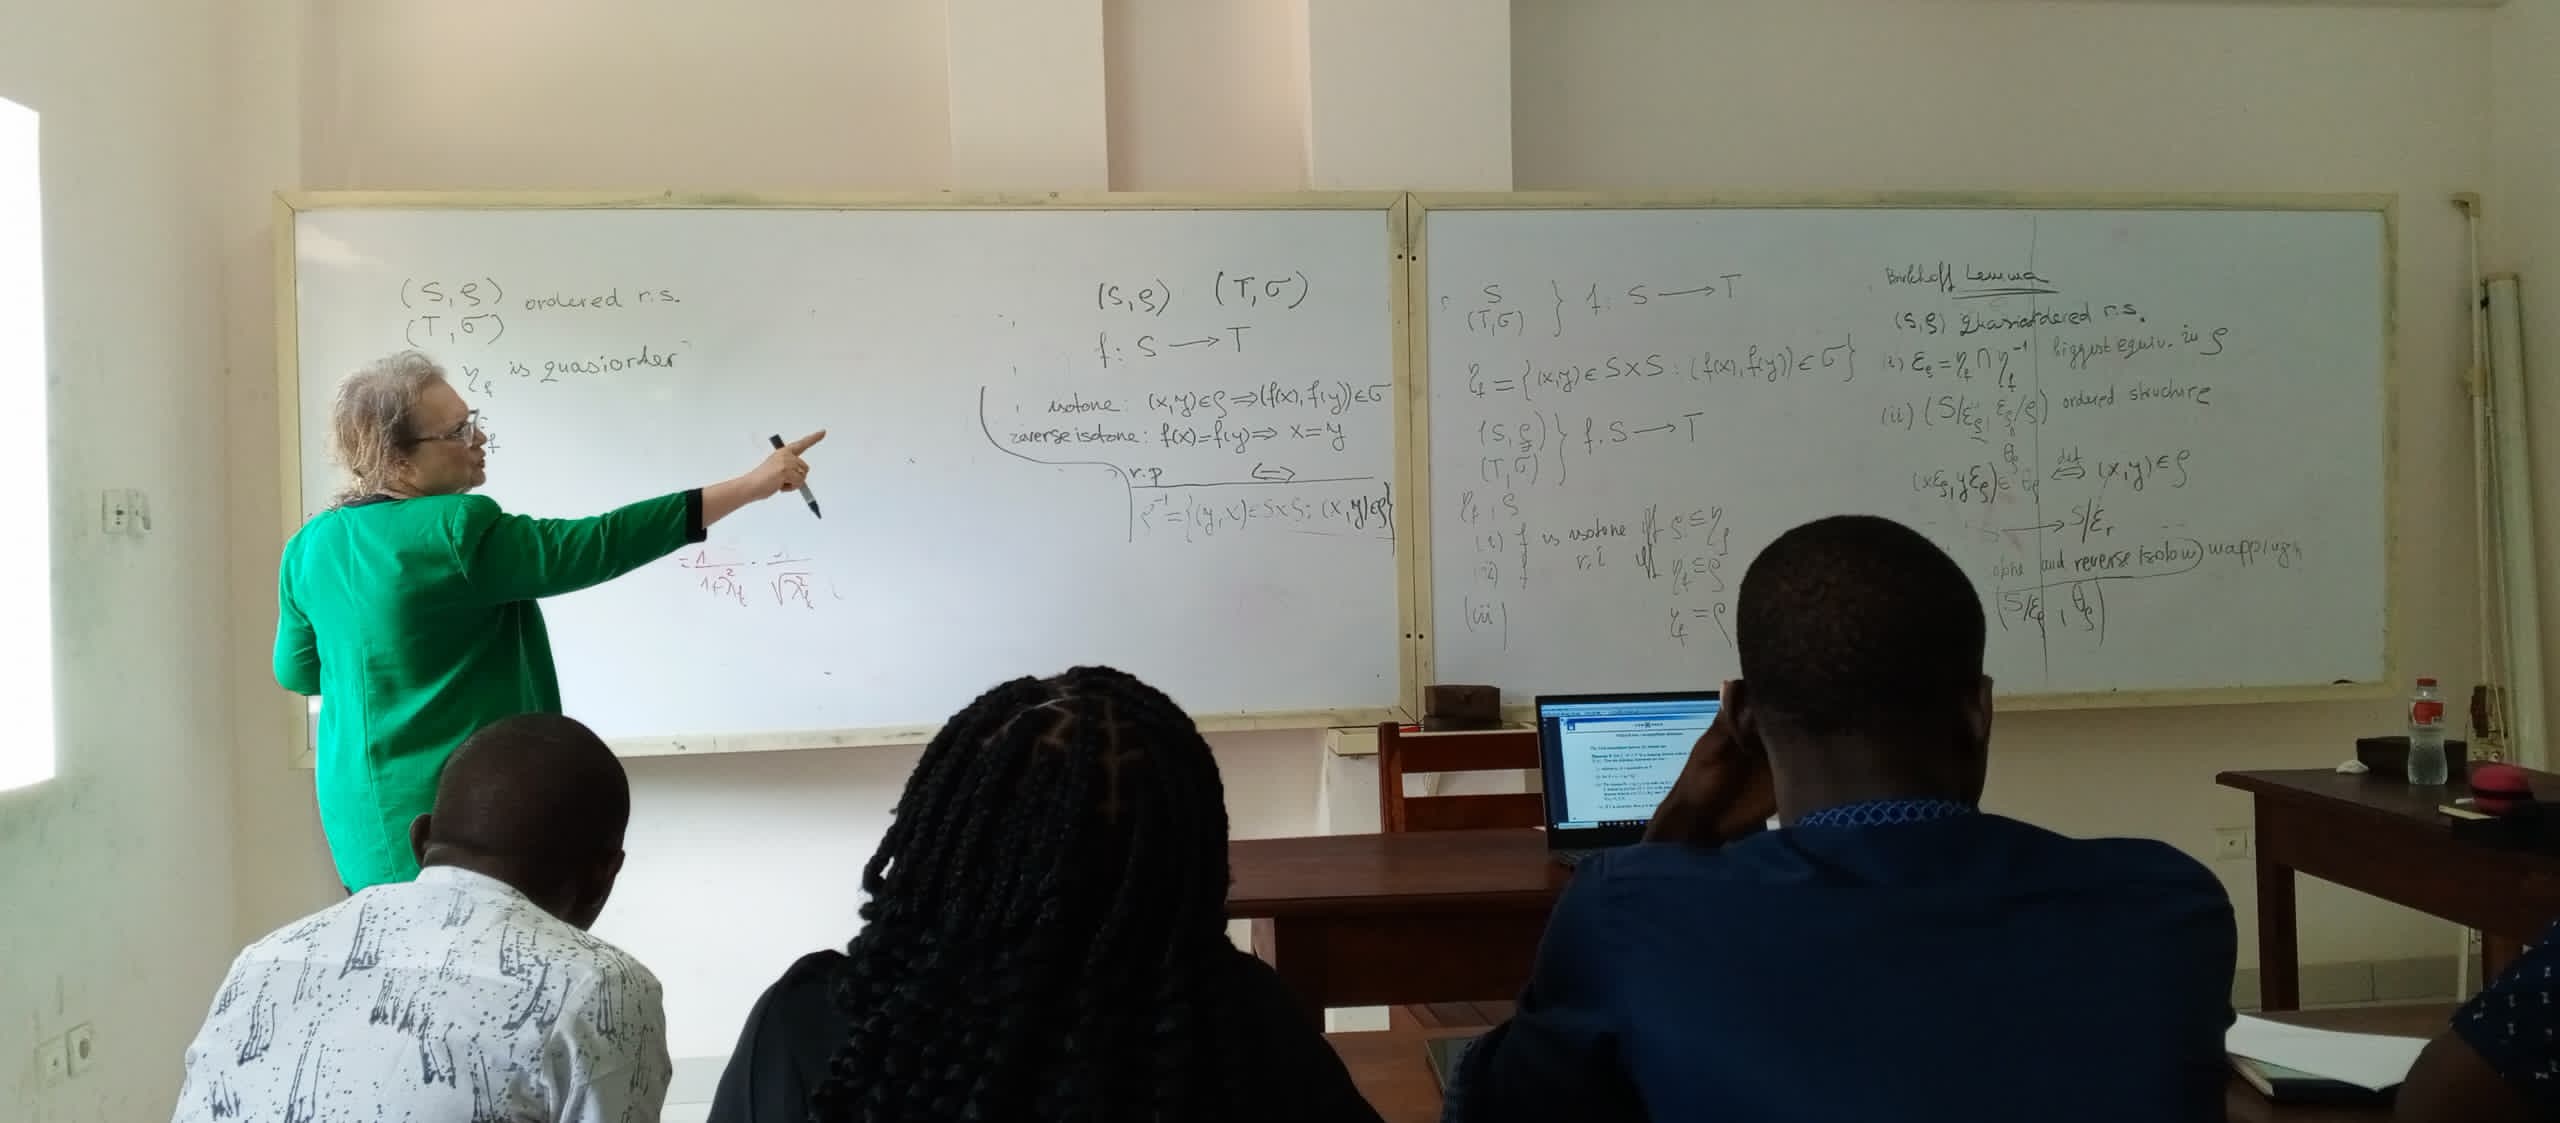 (S,ρ) ordered r.s.
(T,σ)
η_f is quasiorder
= 1/(1+λ_k^2) · /√λ_k^2
(S,ρ) (T,σ)
f: S → T
isotone: (x,y)∈ρ ⇒ (f(x), f(y))∈σ
reverse isotone: f(x)=f(y) ⇒ x=y
r.p ⇔
ρ^-1 = {(y,x)∈S×S: (x,y)∈ρ}
S
(T,σ) } f: S → T
η_f = {(x,y)∈S×S : (f(x), f(y))∈σ}
(S,ρ)
(T,σ) } f: S → T
η_f, ρ
(i) f is isotone iff ρ⊆η_f
(ii) f r.i iff η_f⊆ρ
(iii) η_f = ρ
Birkhoff Lemma
(S,ρ) quasiordered r.s.
(i) ε_ρ = η_f ∩ η_f^-1 biggest equiv. in ρ
(ii) (S/ε_ρ, ε_ρ/ρ) ordered structure
θ_ρ
(xε_ρ, yε_ρ)∈θ_ρ def ⇔ (x,y)∈ρ
→ S/ε_r
and reverse isoton mapping
(S/ε_ρ, θ_ρ)